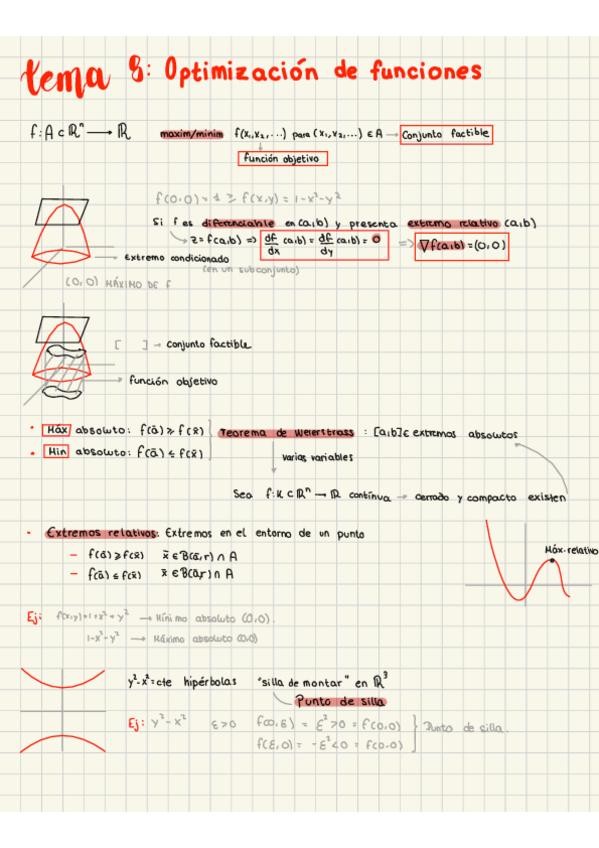 tema 8: Optimización de funciones
f: A ⊂ ℝⁿ → ℝ maxim/minim f(x₁,x₂,...) para (x₁,x₂,...) ∈ A → Conjunto factible
Función objetivo
f(0,0) = 1 ≥ f(x,y) = 1-x²-y²
Si f es diferenciable en (a,b) y presenta extremo relativo (a,b)
z = f(a,b) => df/dx (a,b) = df/dy (a,b) = 0 => ∇f(a,b) = (0,0)
extremo condicionado
(en un subconjunto)
(0,0) MÁXIMO DE f
[ ] → conjunto factible
función objetivo
• Máx absoluto: f(ā) ≥ f(x̄) Teorema de Weierstrass : [a,b] ∈ extremos absolutos
• Min absoluto: f(ā) ≤ f(x̄)
varias variables
Sea f: K ⊂ ℝⁿ → ℝ contínua → cerrado y compacto existen
• Extremos relativos: Extremos en el entorno de un punto
− f(ā) ≥ f(x̄) x̄ ∈ B(ā,r) ∩ A
− f(ā) ≤ f(x̄) x̄ ∈ B(ā,r) ∩ A
Máx.relativo
Ej: f(x,y)=1+x²+y² → Mínimo absoluto (0,0).
1-x²-y² → Máximo absoluto (0,0)
y²-x²=cte hipérbolas "silla de montar" en ℝ³
Punto de silla
Ej: y²-x² ε>0 f(0,ε) = ε² > 0 = f(0,0) } Punto de silla.
f(ε,0) = -ε² < 0 = f(0,0)